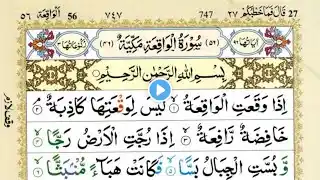 قال فما خطبكم ٢٧ 747 ٧٤٧ 56 الواقعة ٥٦
اٰيَاتُهَا ٩٦ (٥٦) سُوْرَةُ الْوَاقِعَةِ مَكِّيَّةٌ (٤٦)
بِسْمِ اللهِ الرَّحْمٰنِ الرَّحِيْمِ
اِذَا وَقَعَتِ الْوَاقِعَةُ ۙ﴿١﴾ لَيْسَ لِوَقْعَتِهَا كَاذِبَةٌ ۘ﴿٢﴾
خَافِضَةٌ رَّافِعَةٌ ۙ﴿٣﴾ اِذَا رُجَّتِ الْاَرْضُ رَجًّا ۙ﴿٤﴾
وَّ بُسَّتِ الْجِبَالُ بَسًّا ۙ﴿٥﴾ فَكَانَتْ هَبَآءً مُّنْۢبَثًّا ۙ﴿٦﴾